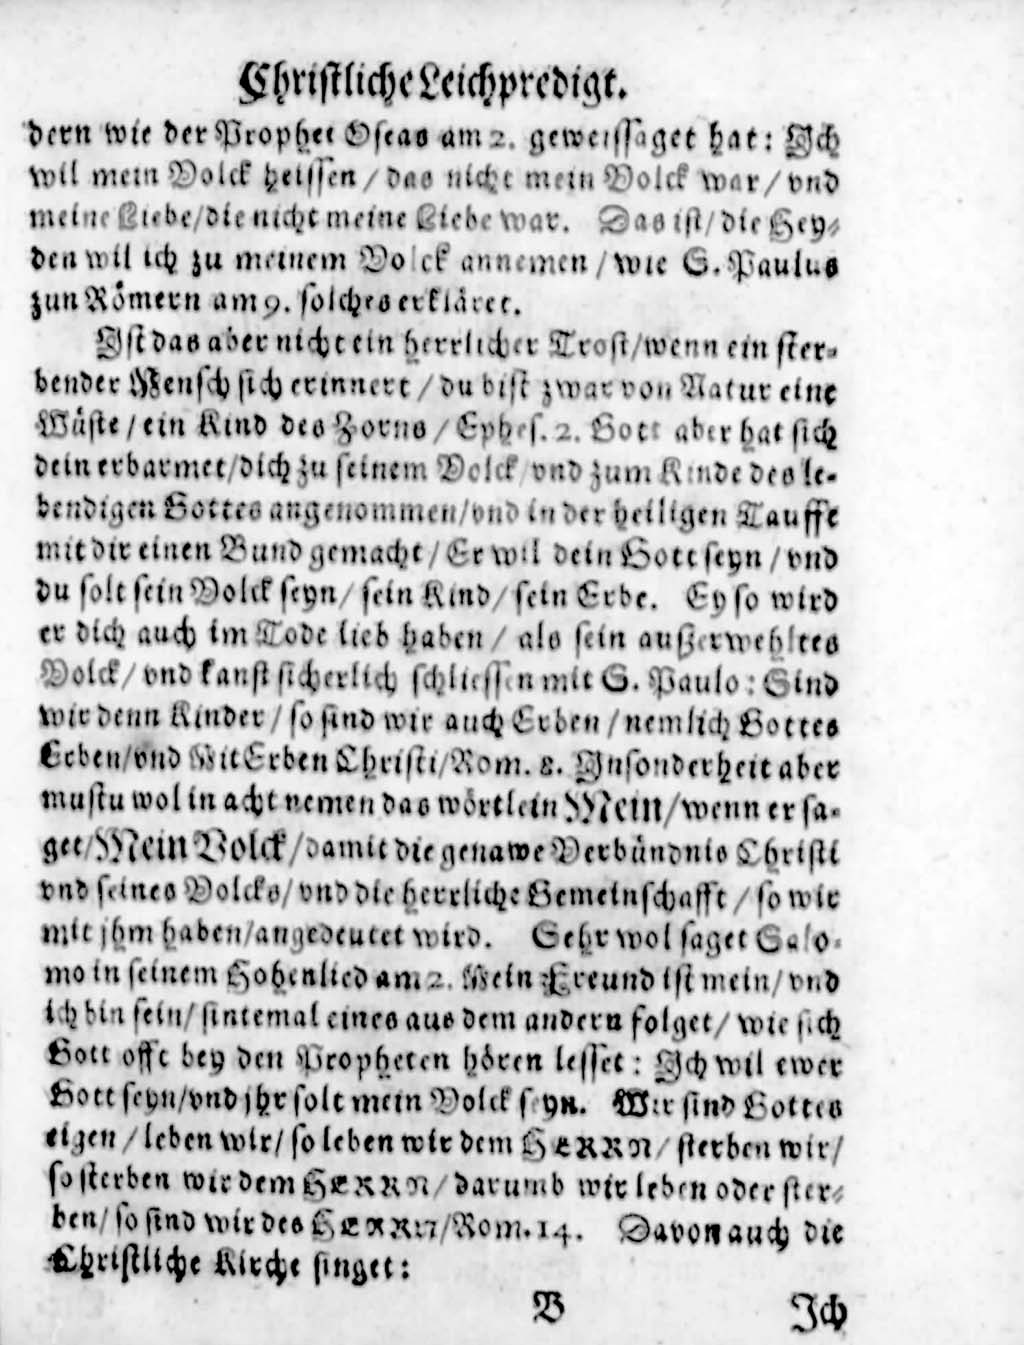 Christliche Leichpredigt.
dern wie der Prophet Oseas am 2. geweissaget hat: Jch
wil mein Volck heissen / das nicht mein Volck war / vnd
meine Liebe/die nicht meine Liebe war. Das ist/ die Hey-
den wil ich zu meinem Volck annemen / wie S. Paulus
zun Römern am 9. solches erkläret.
Jst das aber nicht ein herrlicher Trost/wenn ein ster-
bender Mensch sich erinnert / du bist zwar von Natur eine
Wüste / ein Kind des Zorns / Ephes. 2. Gott aber hat sich
dein erbarmet/dich zu seinem Volck/vnd zum Kinde des le-
bendigen Gottes angenommen/vnd in der heiligen Tauffe
mit dir einen Bund gemacht / Er wil dein Gott seyn / vnd
du solt sein Volck seyn/ sein Kind/ sein Erbe. Ey so wird
er dich auch im Tode lieb haben / als sein außerwehltes
Volck/ vnd kanst sicherlich schliessen mit S. Paulo: Sind
wir denn Kinder / so sind wir auch Erben / nemlich Gottes
Erben/vnd MitErben Christi/Rom. 8. Jnsonderheit aber
mustu wol in acht nemen das wörtlein Mein/wenn er sa-
get/Mein Volck/damit die genawe Verbündnis Christi
vnd seines Volcks/ vnd die herrliche Gemeinschafft / so wir
mit jhm haben/angedeutet wird. Sehr wol saget Salo-
mo in seinem Hohenlied am 2. Mein Freund ist mein/ vnd
ich bin sein/ sintemal eines aus dem andern folget/ wie sich
Gott offt bey den Propheten hören lesset: Jch wil ewer
Gott seyn/vnd jhr solt mein Volck seyn. Wir sind Gottes
eigen / leben wir/ so leben wir dem HERRN/ sterben wir/
so sterben wir dem HERRN/ darumb wir leben oder ster-
ben/ so sind wir des HERRN/Rom. 14. Davon auch die
Christliche Kirche singet:
B Jch